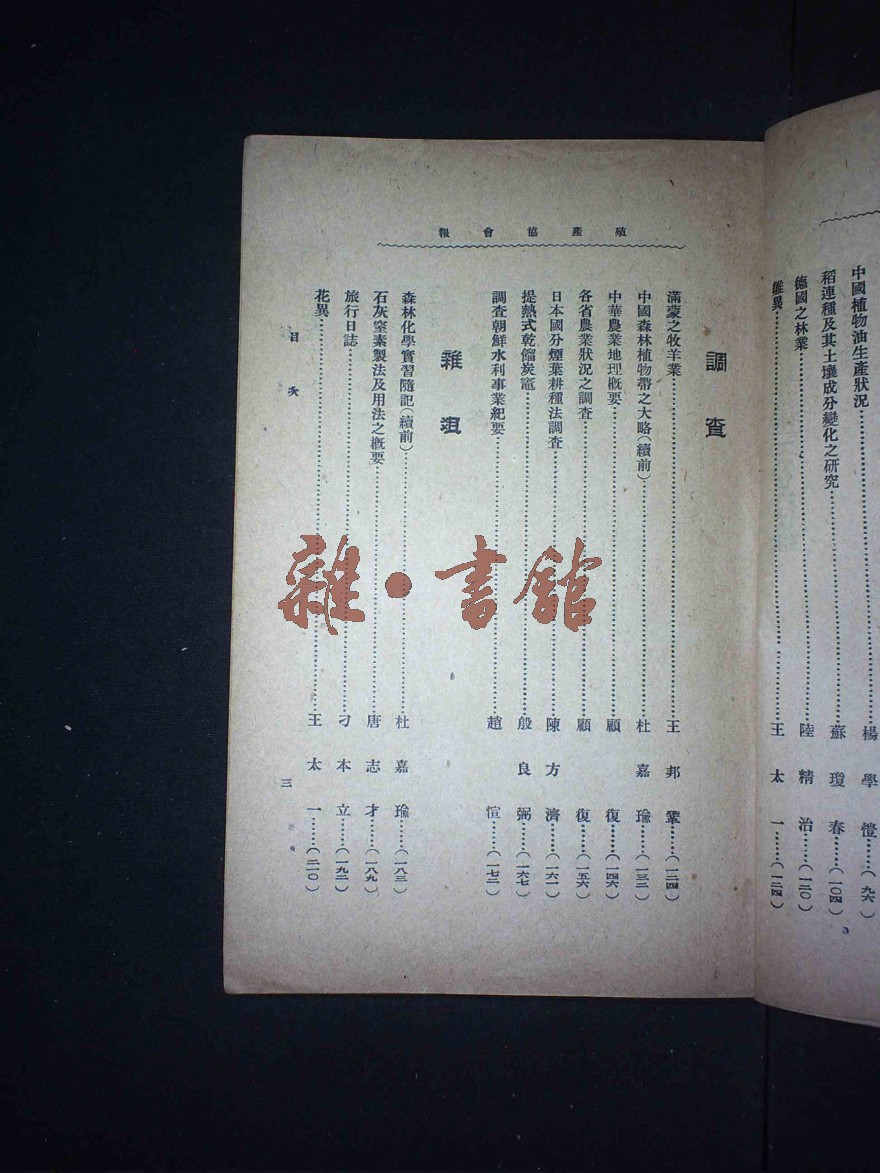 中國植物油生產狀況……楊學愷……(九六)
稻連種及其土壤成分變化之研究……蘇瓊春……(一〇四)
德國之林業……陸精治……(一二〇)
王太一……(一二四)
殖產協會報
調查
滿蒙之牧羊業……王邦鞏……(一二四)
中國森林植物帶之大略(續前)……杜嘉瑜……(一三二)
中華農業地理概要……顧復……(一四六)
各省農業狀況之調查……顧復……(一五六)
日本國分煙葉耕種法調查……陳方濟……(一六一)
提熱式乾餾炭窰……殷良弼……(一六七)
調查朝鮮水利事業紀要……趙愃……(一七二)
雜俎
森林化學實習隨記(續前)……杜嘉瑜……(一八三)
石灰窒素製法及用法之概要……唐志才……(一八九)
旅行日誌……刁本立……(一九二)
花異……王太一……(二一〇)
目次
三
雜·書館